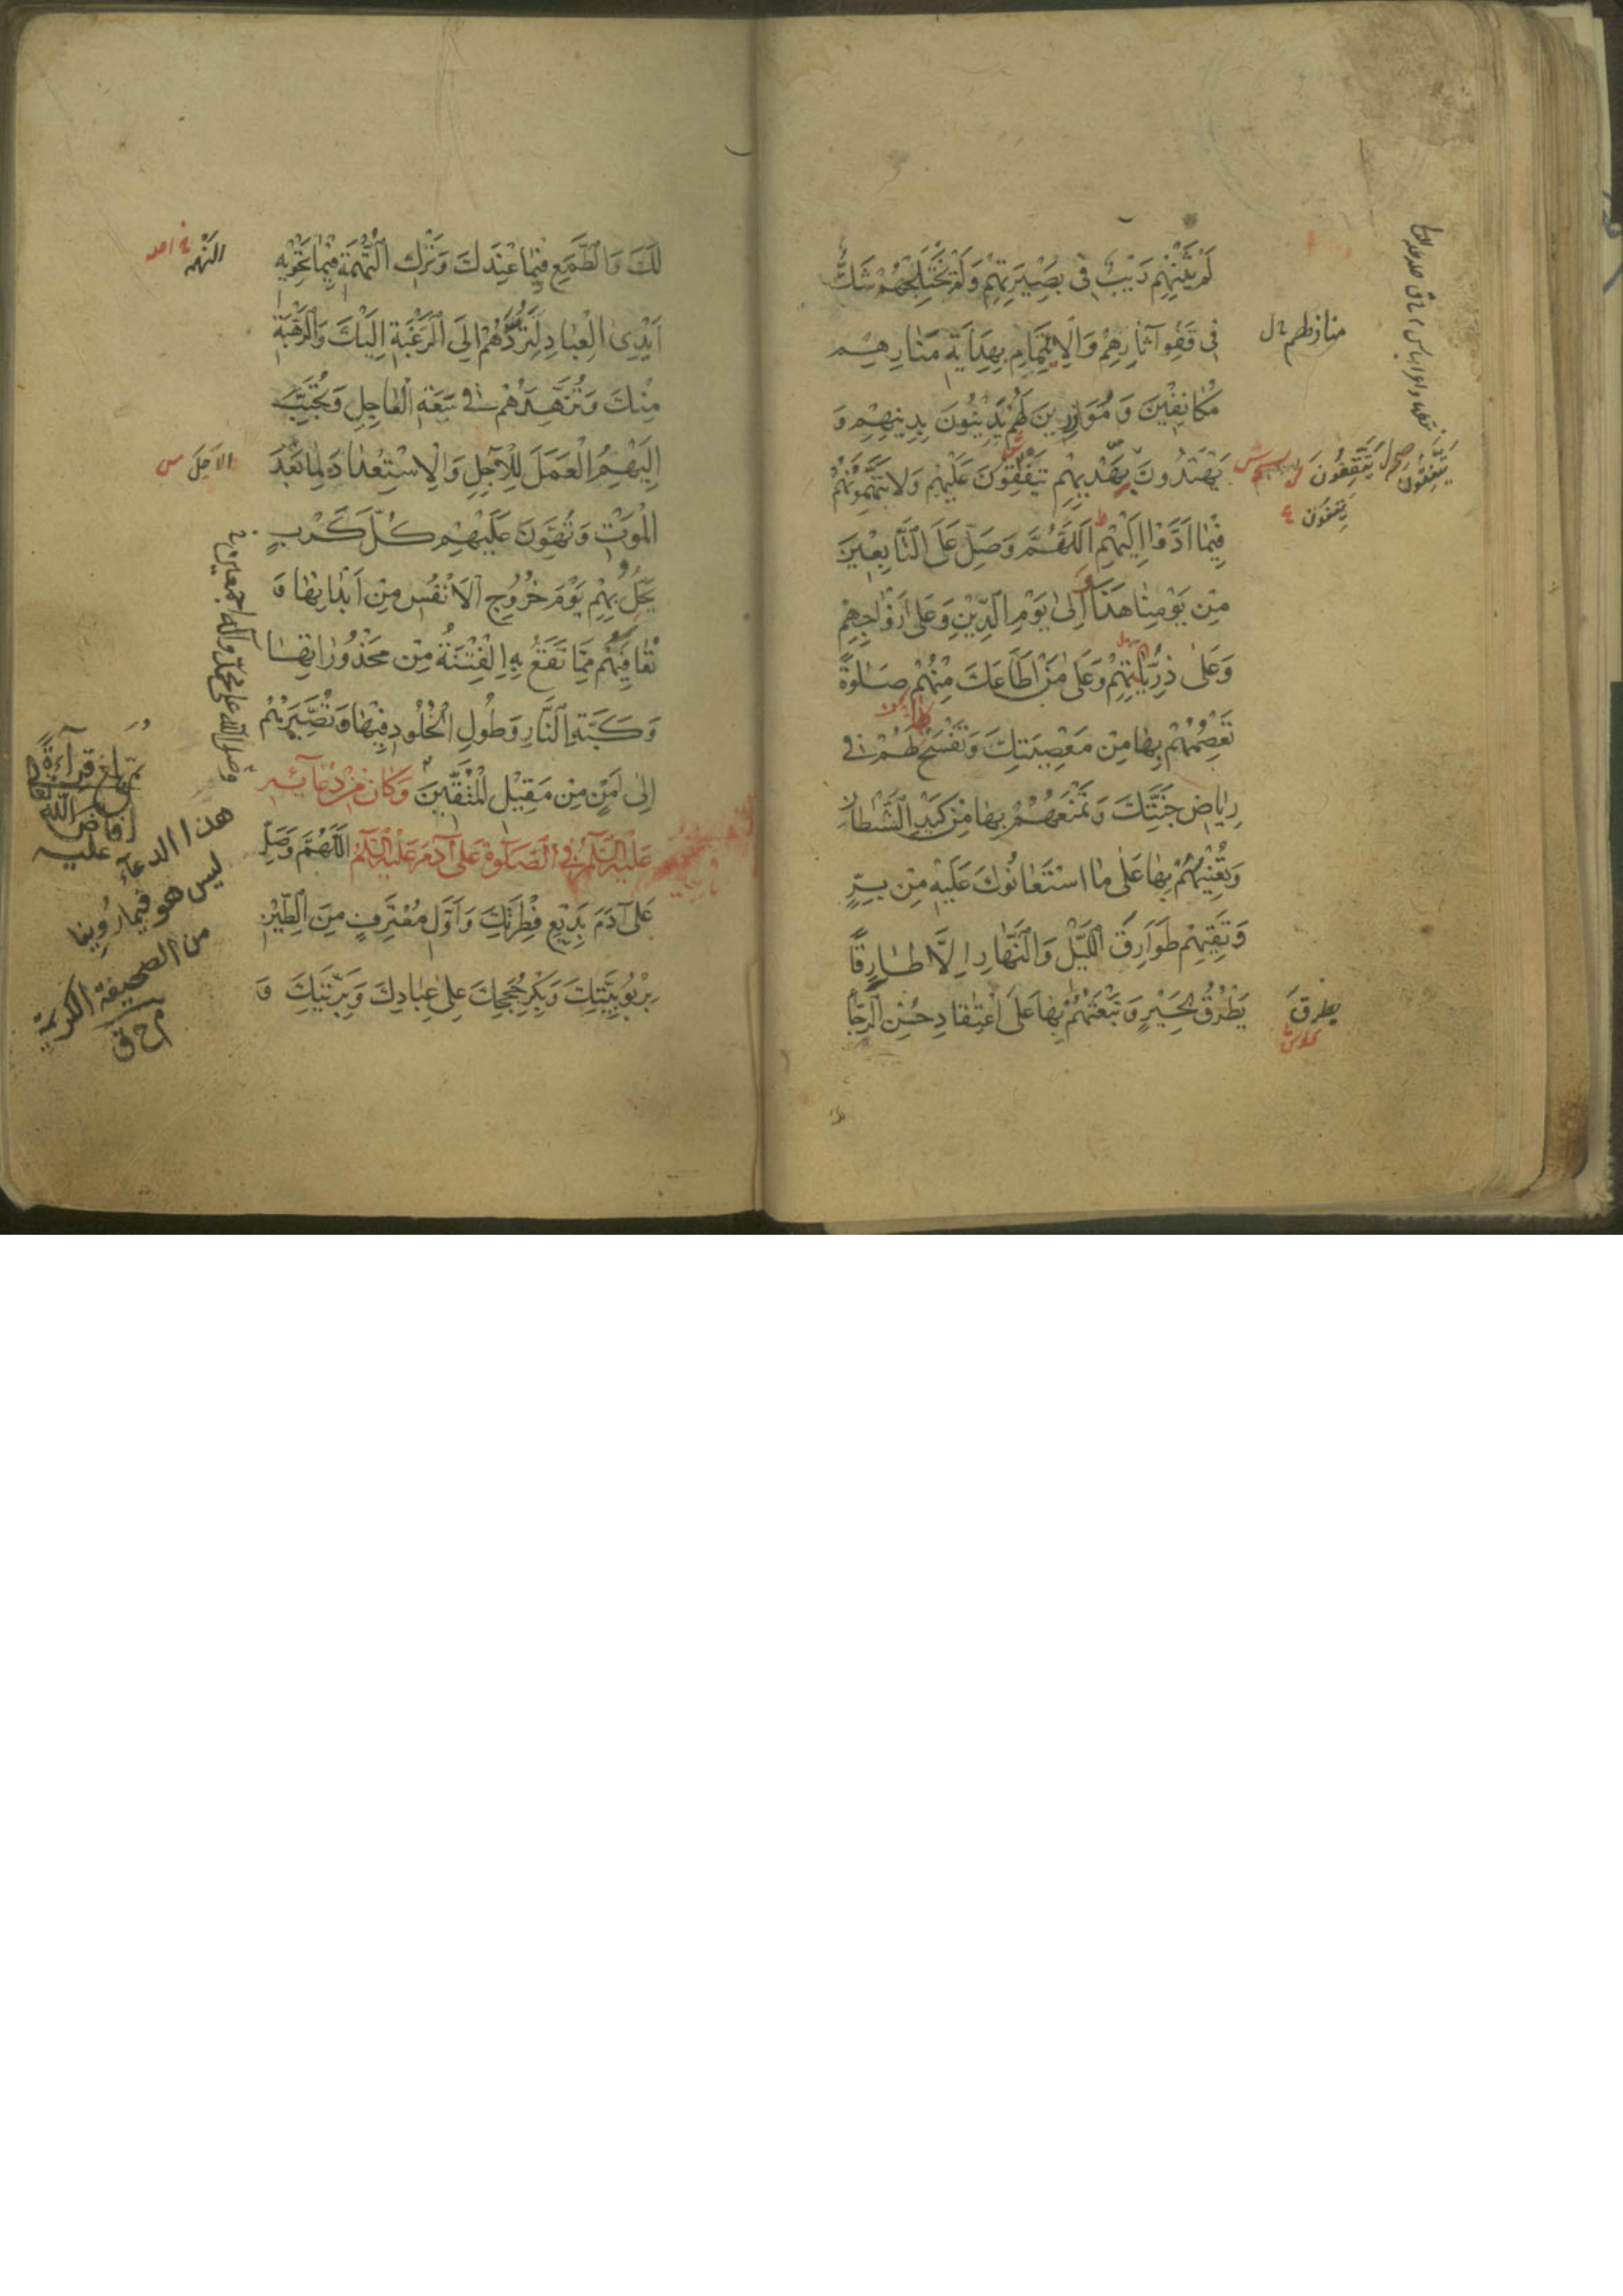 لَمْ يَثْنِهِمْ رَيْبٌ فِى بَصِيرَتِهِمْ وَلَمْ يَخْتَلِجْهُمْ شَكٌّ
فِى قَفْوِ آثَارِهِمْ وَالْاِئْتِمَامِ بِهِدَايَةِ مَنَارِهِمْ
مُكَانِفِينَ وَ مُوَازِرِينَ لَهُمْ يَدِينُونَ بِدِينِهِمْ وَ
يَهْتَدُونَ بِهَدْيِهِمْ يَتَّفِقُونَ عَلَيْهِمْ وَلَا يَتَّهِمُونَهُمْ
فِيمَا اَدَّوْا اِلَيْهِمْ اَللّٰهُمَّ وَصَلِّ عَلَى التَّابِعِينَ
مِنْ يَوْمِنَا هٰذَا اِلٰى يَوْمِ الدِّينِ وَعَلٰى اَزْوَاجِهِمْ
وَعَلٰى ذُرِّيَّاتِهِمْ وَعَلٰى مَنْ اَطَاعَكَ مِنْهُمْ صَلٰوةً
تَعْصِمُهُمْ بِهَا مِنْ مَعْصِيَتِكَ وَتَفْسَحُ لَهُمْ فِى
رِيَاضِ جَنَّتِكَ وَ تَمْنَعُهُمْ بِهَا مِنْ كَيْدِ الشَّيْطَانِ
وَتُعِينُهُمْ بِهَا عَلٰى مَا اسْتَعَانُوكَ عَلَيْهِ مِنْ بِرٍّ
وَتَقِيهِمْ طَوَارِقَ اللَّيْلِ وَالنَّهَارِ اِلَّا طَارِقًا
يَطْرُقُ بِخَيْرٍ وَ تَبْعَثُهُمْ بِهَا عَلَى اعْتِقَادِ حُسْنِ الرَّجَاءِ
يَتَّقِفُونَ
يطرقَ
لَكَ وَالطَّمَعِ فِيمَا عِنْدَكَ وَتَرْكِ التُّهَمَةِ فِيمَا تَحْوِيهِ
اَيْدِى الْعِبَادِ لِتَرُدَّهُمْ اِلَى الرَّغْبَةِ اِلَيْكَ وَالرَّهْبَةِ
مِنْكَ وَتُزَهِّدَهُمْ فِى سَعَةِ الْعَاجِلِ وَتُحَبِّبَ
اِلَيْهِمُ الْعَمَلَ لِلْآجِلِ وَالْاِسْتِعْدَادَ لِمَا بَعْدَ
الْمَوْتِ وَتُهَوِّنَ عَلَيْهِمْ كُلَّ كَرْبٍ
يَحُلُّ بِهِمْ يَوْمَ خُرُوجِ الْاَنْفُسِ مِنْ اَبْدَانِهَا وَ
تُعَافِيَهُمْ مِمَّا تَقَعُ بِهِ الْفِتْنَةُ مِنْ مَحْذُورَاتِهَا
وَ كَبَّةِ النَّارِ وَطُولِ الْخُلُودِ فِيهَا وَتُصَيِّرَهُمْ
اِلٰى اَمْنٍ مِنْ مَقِيلِ الْمُتَّقِينَ وَكَانَ مِنْ دُعَآئِهِ
عَلَيْهِ السَّلَامُ فِى الصَّلٰوةِ عَلٰى آدَمَ عَلَيْهِ السَّلَامُ اَللّٰهُمَّ وَصَلِّ
عَلٰى آدَمَ بَدِيعِ فِطْرَتِكَ وَاَوَّلِ مُعْتَرِفٍ مِنَ الطِّينِ
بِرُبُوبِيَّتِكَ وَبِكْرِ حُجَجِكَ عَلٰى عِبَادِكَ وَبَرِيَّتِكَ وَ
الاَجَلَ س
وصلى الله على محمد وآله اجمعين
ثم بلغ قراءةً
افاض الله تعالى
عليه
هذا الدعاء
ليس هو فيما روينا
من الصحيفة الكريمة
م ح ق